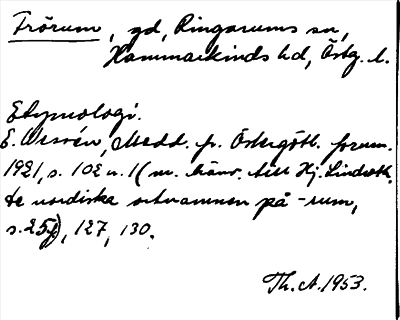 Frörum, gd, Ringarums sn,
Hammarkinds hd, Östg. l.
Etymologi.
E. Wessén, Medd. fr. Östergötl. fornm.
1921, s. 102 n. 1 (m. hänv. till Hj. Lindroth,
de nordiska ortnamnen på -rum,
s. 25 f), 127, 130.
Th. A. 1953.